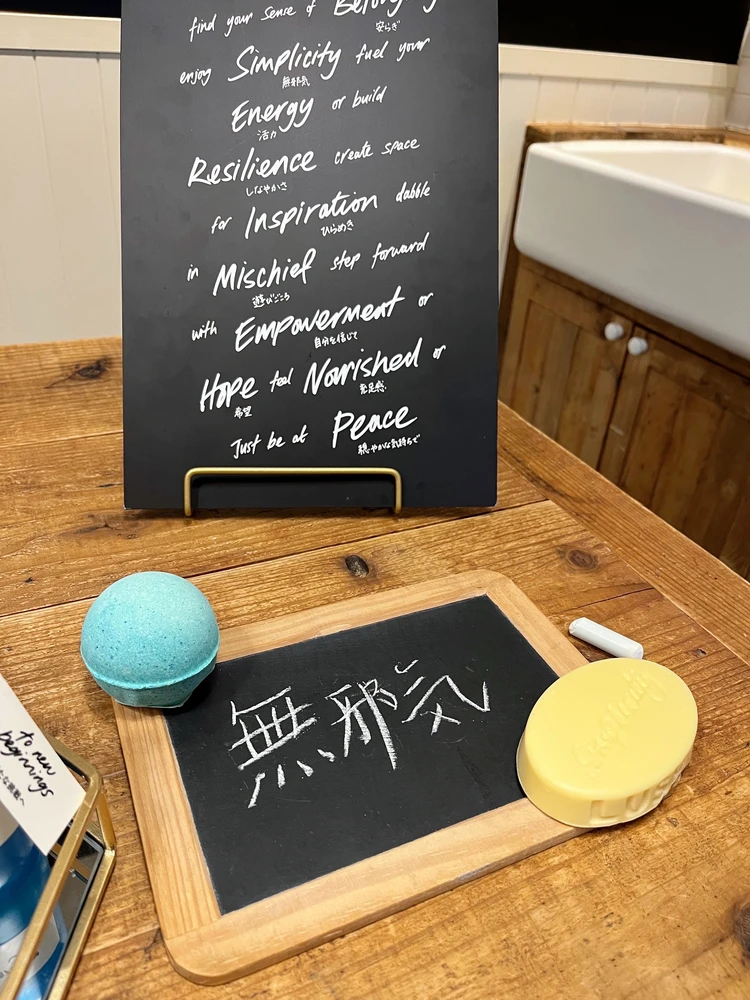 find your sense of Belonging
安らぎ
enjoy Simplicity fuel your
無邪気
Energy or build
活力
Resilience create space
しなやかさ
for Inspiration dabble
ひらめき
in Mischief step forward
遊びごころ
with Empowerment or
自分を信じて
Hope feel Nourished or
希望 充足感
Just be at Peace
穏やかな気持ちで
無邪気
Simplicity
LUSH
to new
beginnings